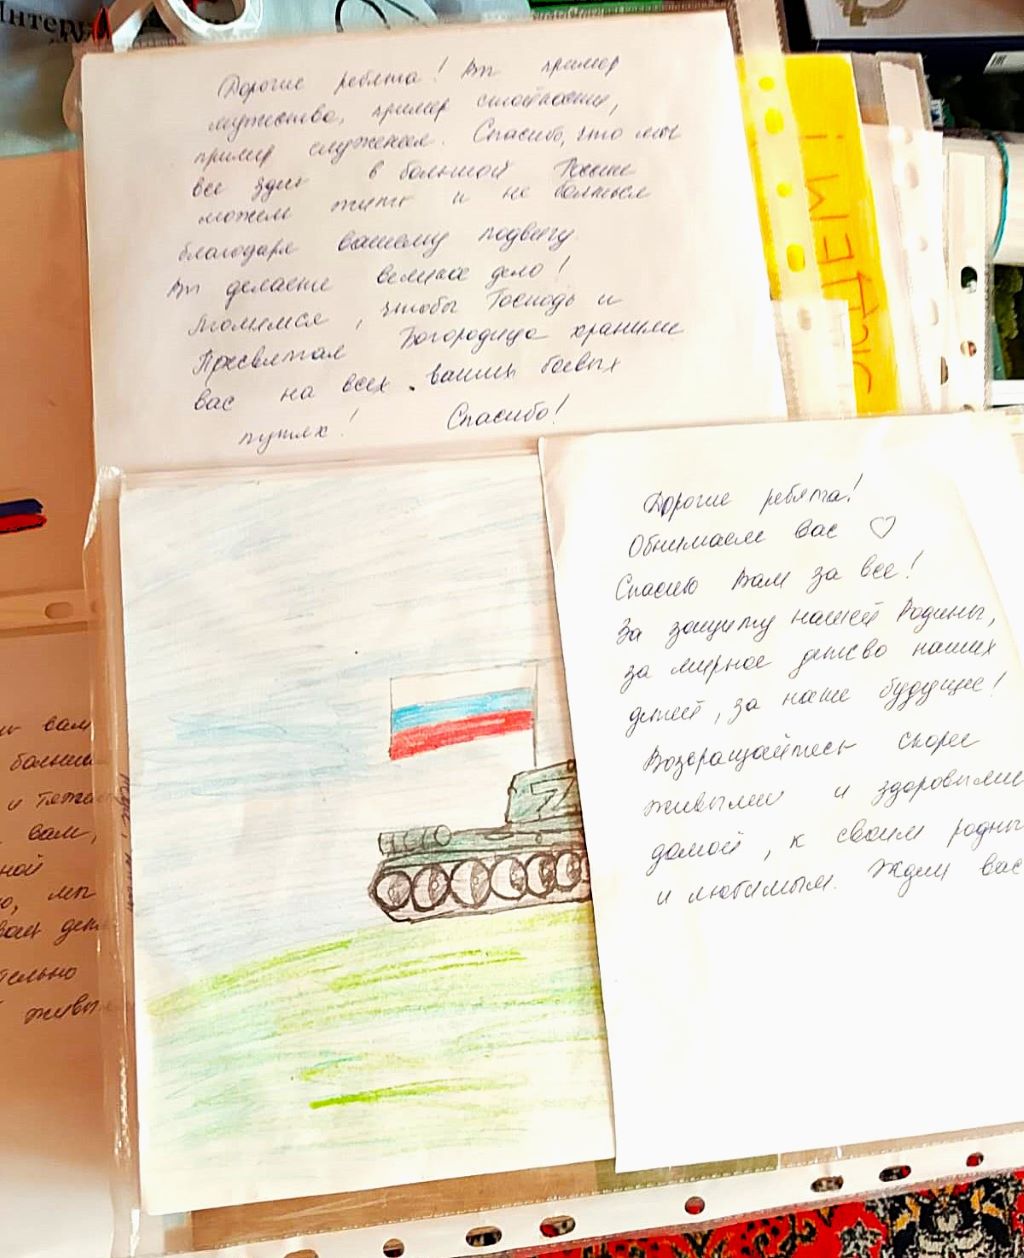 Интер
Дорогие ребята! Вы пример
мужества, пример стойкости,
пример служения. Спасибо, что мы
все здесь в большой России
можем жить и не бояться
благодаря вашему подвигу.
Вы делаете великое дело!
Молимся, чтобы Господь и
Пресвятая Богородица хранили
вас на всех вашых боевых
путях! Спасибо!
ЖДЕМ!
Дорогие ребята!
Обнимаем вас ♡
Спасибо Вам за все!
За защиту нашей Родины,
за мирное детсво наших
детей, за наше будущее!
Возвращайтесь скорее
живыми и здоровыми
домой, к своим родны
и любимым. Ждем вас
Z
вам
больши
и
вам,
ной
мы
тельно
живы